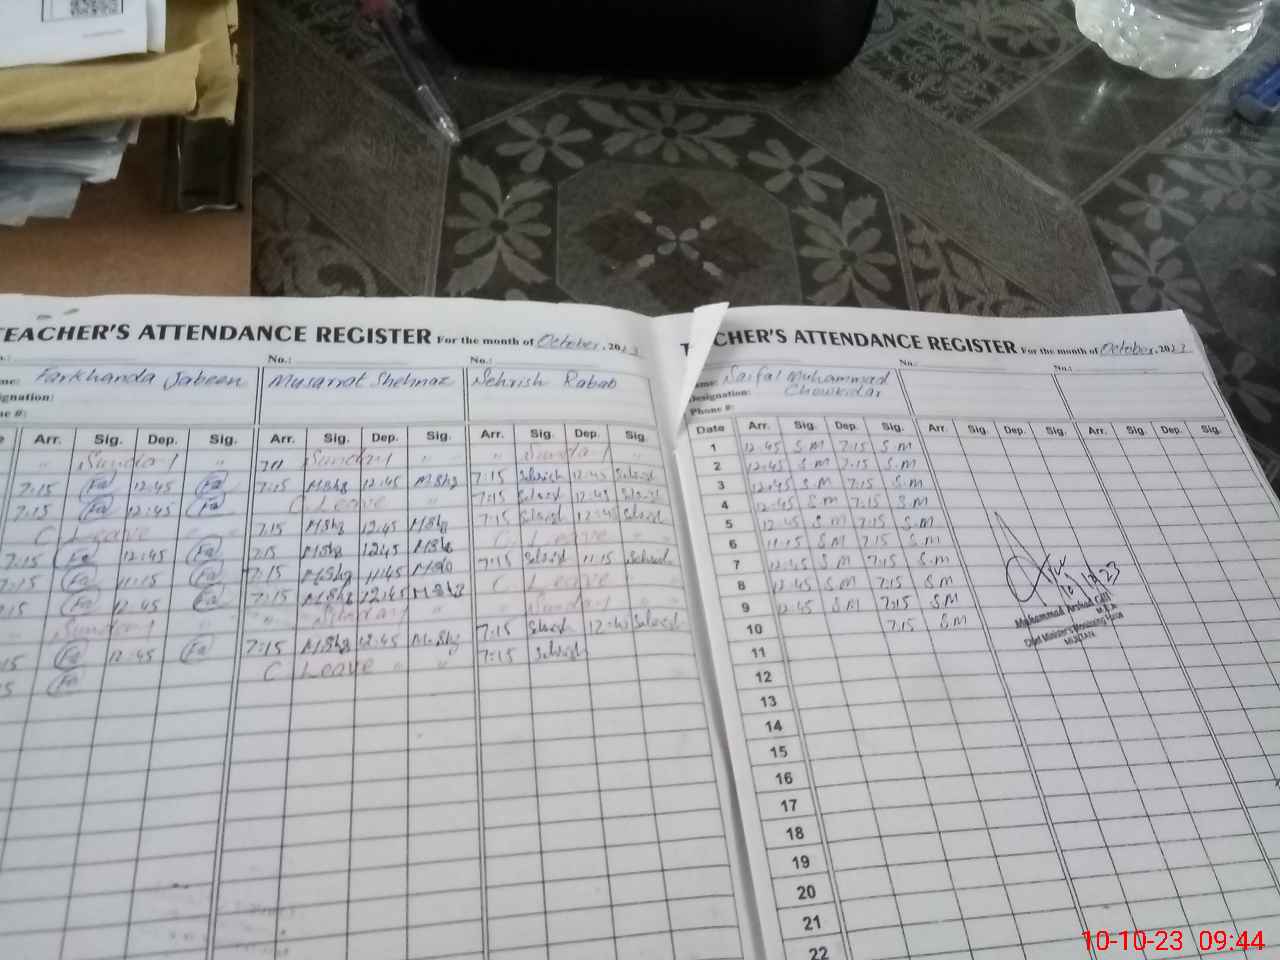 TEACHER'S ATTENDANCE REGISTER For the month of October, 2023
No.: No.:
Farkhanda Jabeen Musarrat Shehnaz Sehrish Rabab
Arr. Sig. Dep. Sig. Arr. Sig. Dep. Sig. Arr. Sig. Dep. Sig.
" Sunday " Sunday Sunday "
7:15 Fa 12:45 Fa 7:15 M.Shz 12:45 M.Shz 7:15 Sehrish 12:45 Sehrish
7:15 Fa 12:45 Fa C. Leave " 7:15 Sehrish 12:45 Sehrish
C Leave 7:15 M.Shz 12:45 M.Shz 7:15 Sehrish 12:45 Sehrish
7:15 Fa 12:45 Fa 7:15 M.Shz 12:45 M.Shz C. Leave "
7:15 Fa 11:15 Fa 7:15 M.Shz 11:45 M.Shz 7:15 Sehrish 11:15 Sehrish
7:15 Fa 12:45 Fa 7:15 M.Shz 12:45 M.Shz C Leave "
" Sunday " Sunday " Sunday "
Fa 12:45 Fa 7:15 M.Shz 12:45 M.Shz 7:15 Sehrish 12:45 Sehrish
Fa C Leave " " 7:15 Sehrish
CHER'S ATTENDANCE REGISTER For the month of October, 2023
No.: No.:
Saifal Muhammad
Designation: Chowkidar
Phone #:
Date Arr. Sig. Dep. Sig. Arr. Sig. Dep. Sig. Arr. Sig. Dep. Sig.
1 12:45 S.M 7:15 S.M
2 12:45 S.M 7:15 S.M
3 12:45 S.M 7:15 S.M
4 12:45 S.M 7:15 S.M
5 12:45 S.M 7:15 S.M
6 11:15 S.M 7:15 S.M
7 12:45 S.M 7:15 S.M
8 12:45 S.M 7:15 S.M
9 12:45 S.M 7:15 S.M
10 7:15 S.M
11
12
13
14
15
16
17
18
19
20
21
22
10/10/23
Muhammad Arshad
M.E.A
Chief Minister's Monitoring Force
MULTAN
10-10-23 09:44